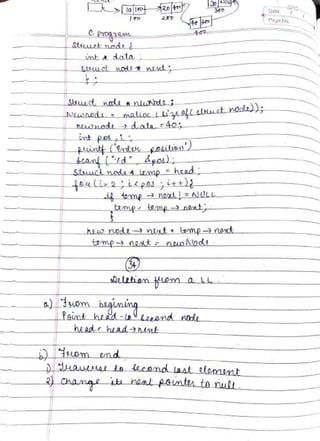 10 200
20 400
30 NULL
100
200
300
40 300
400
Date
Page No.
C program
struct node {
int * data;
struct node * next;
};
struct node * newNode;
Newnode = malloc (sizeof (struct node));
newnode → data = 40;
int pos, i;
printf ("Enter position")
scanf ("%d", &pos);
struct node * temp = head;
for (i=2; i<pos; i++) {
if temp → next != NULL
temp = temp → next;
}
new node → next = temp → next
temp → next = newNode
34
Deletion from a LL
a) From begining
Point head to second node
head = head → next
b) From end
1) Traverse to second last element
2) Change its next pointer to null.